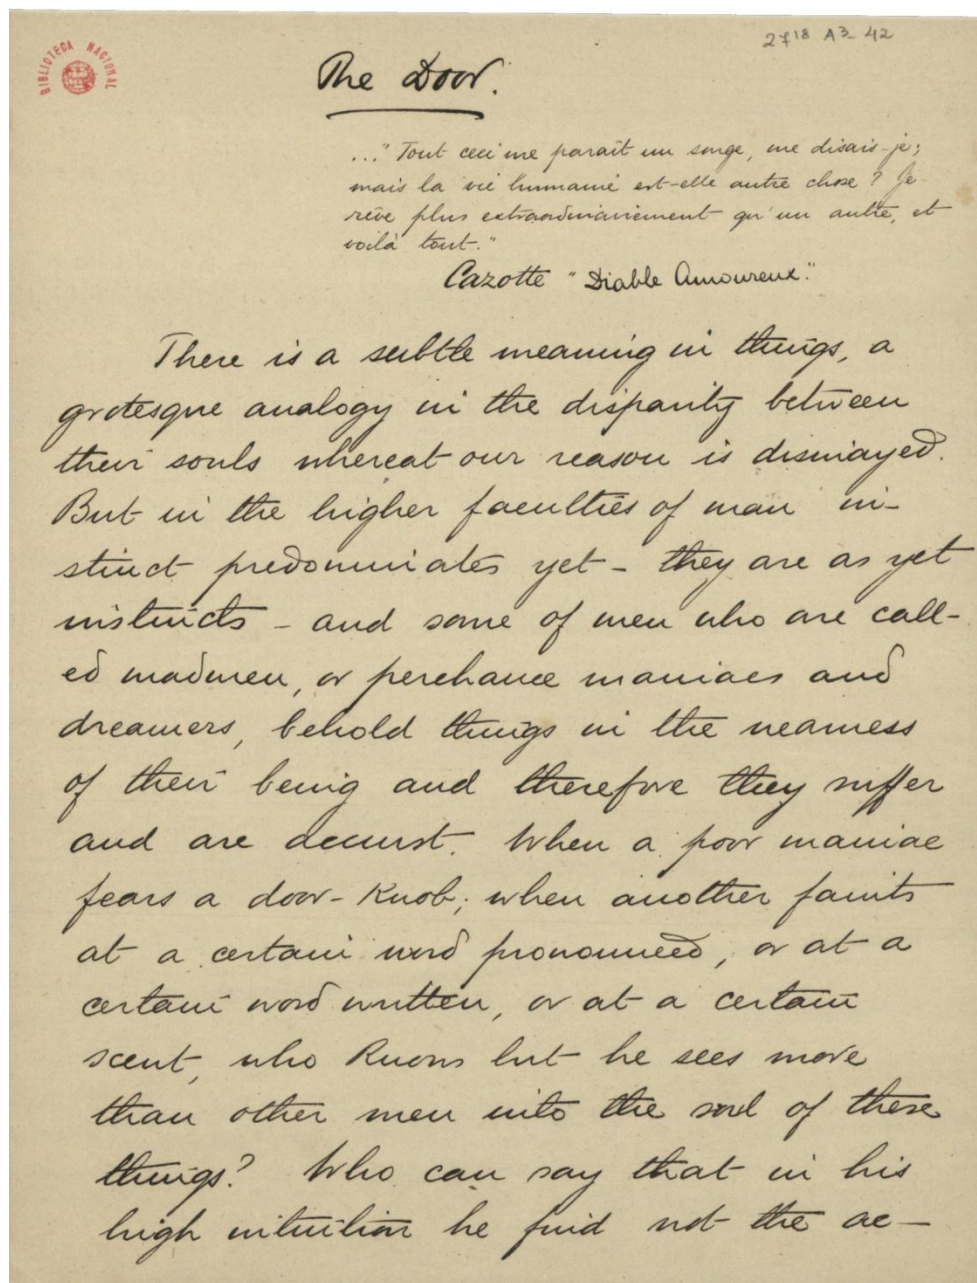 BIBLIOTECA NACIONAL
27¹⁸ A³- 42
The Door.
..." Tout ceci me paraît un songe, me disais-je;
mais la vie humaine est-elle autre chose? Je
rêve plus extraordinairement qu'un autre, et
voilà tout."
Cazotte "Diable Amoureux."
There is a subtle meaning in things, a
grotesque analogy in the disparity between
their souls whereat our reason is dismayed.
But in the higher faculties of man in-
stinct predominates yet - they are as yet
instincts - and some of men who are call-
ed madmen, or perchance maniacs and
dreamers, behold things in the nearness
of their being and therefore they suffer
and are accurst. When a poor maniac
fears a door-knob; when another faints
at a certain word pronounced, or at a
certain word written, or at a certain
scent, who knows but he sees more
than other men into the soul of these
things? Who can say that in his
high intuition he find not the ac-